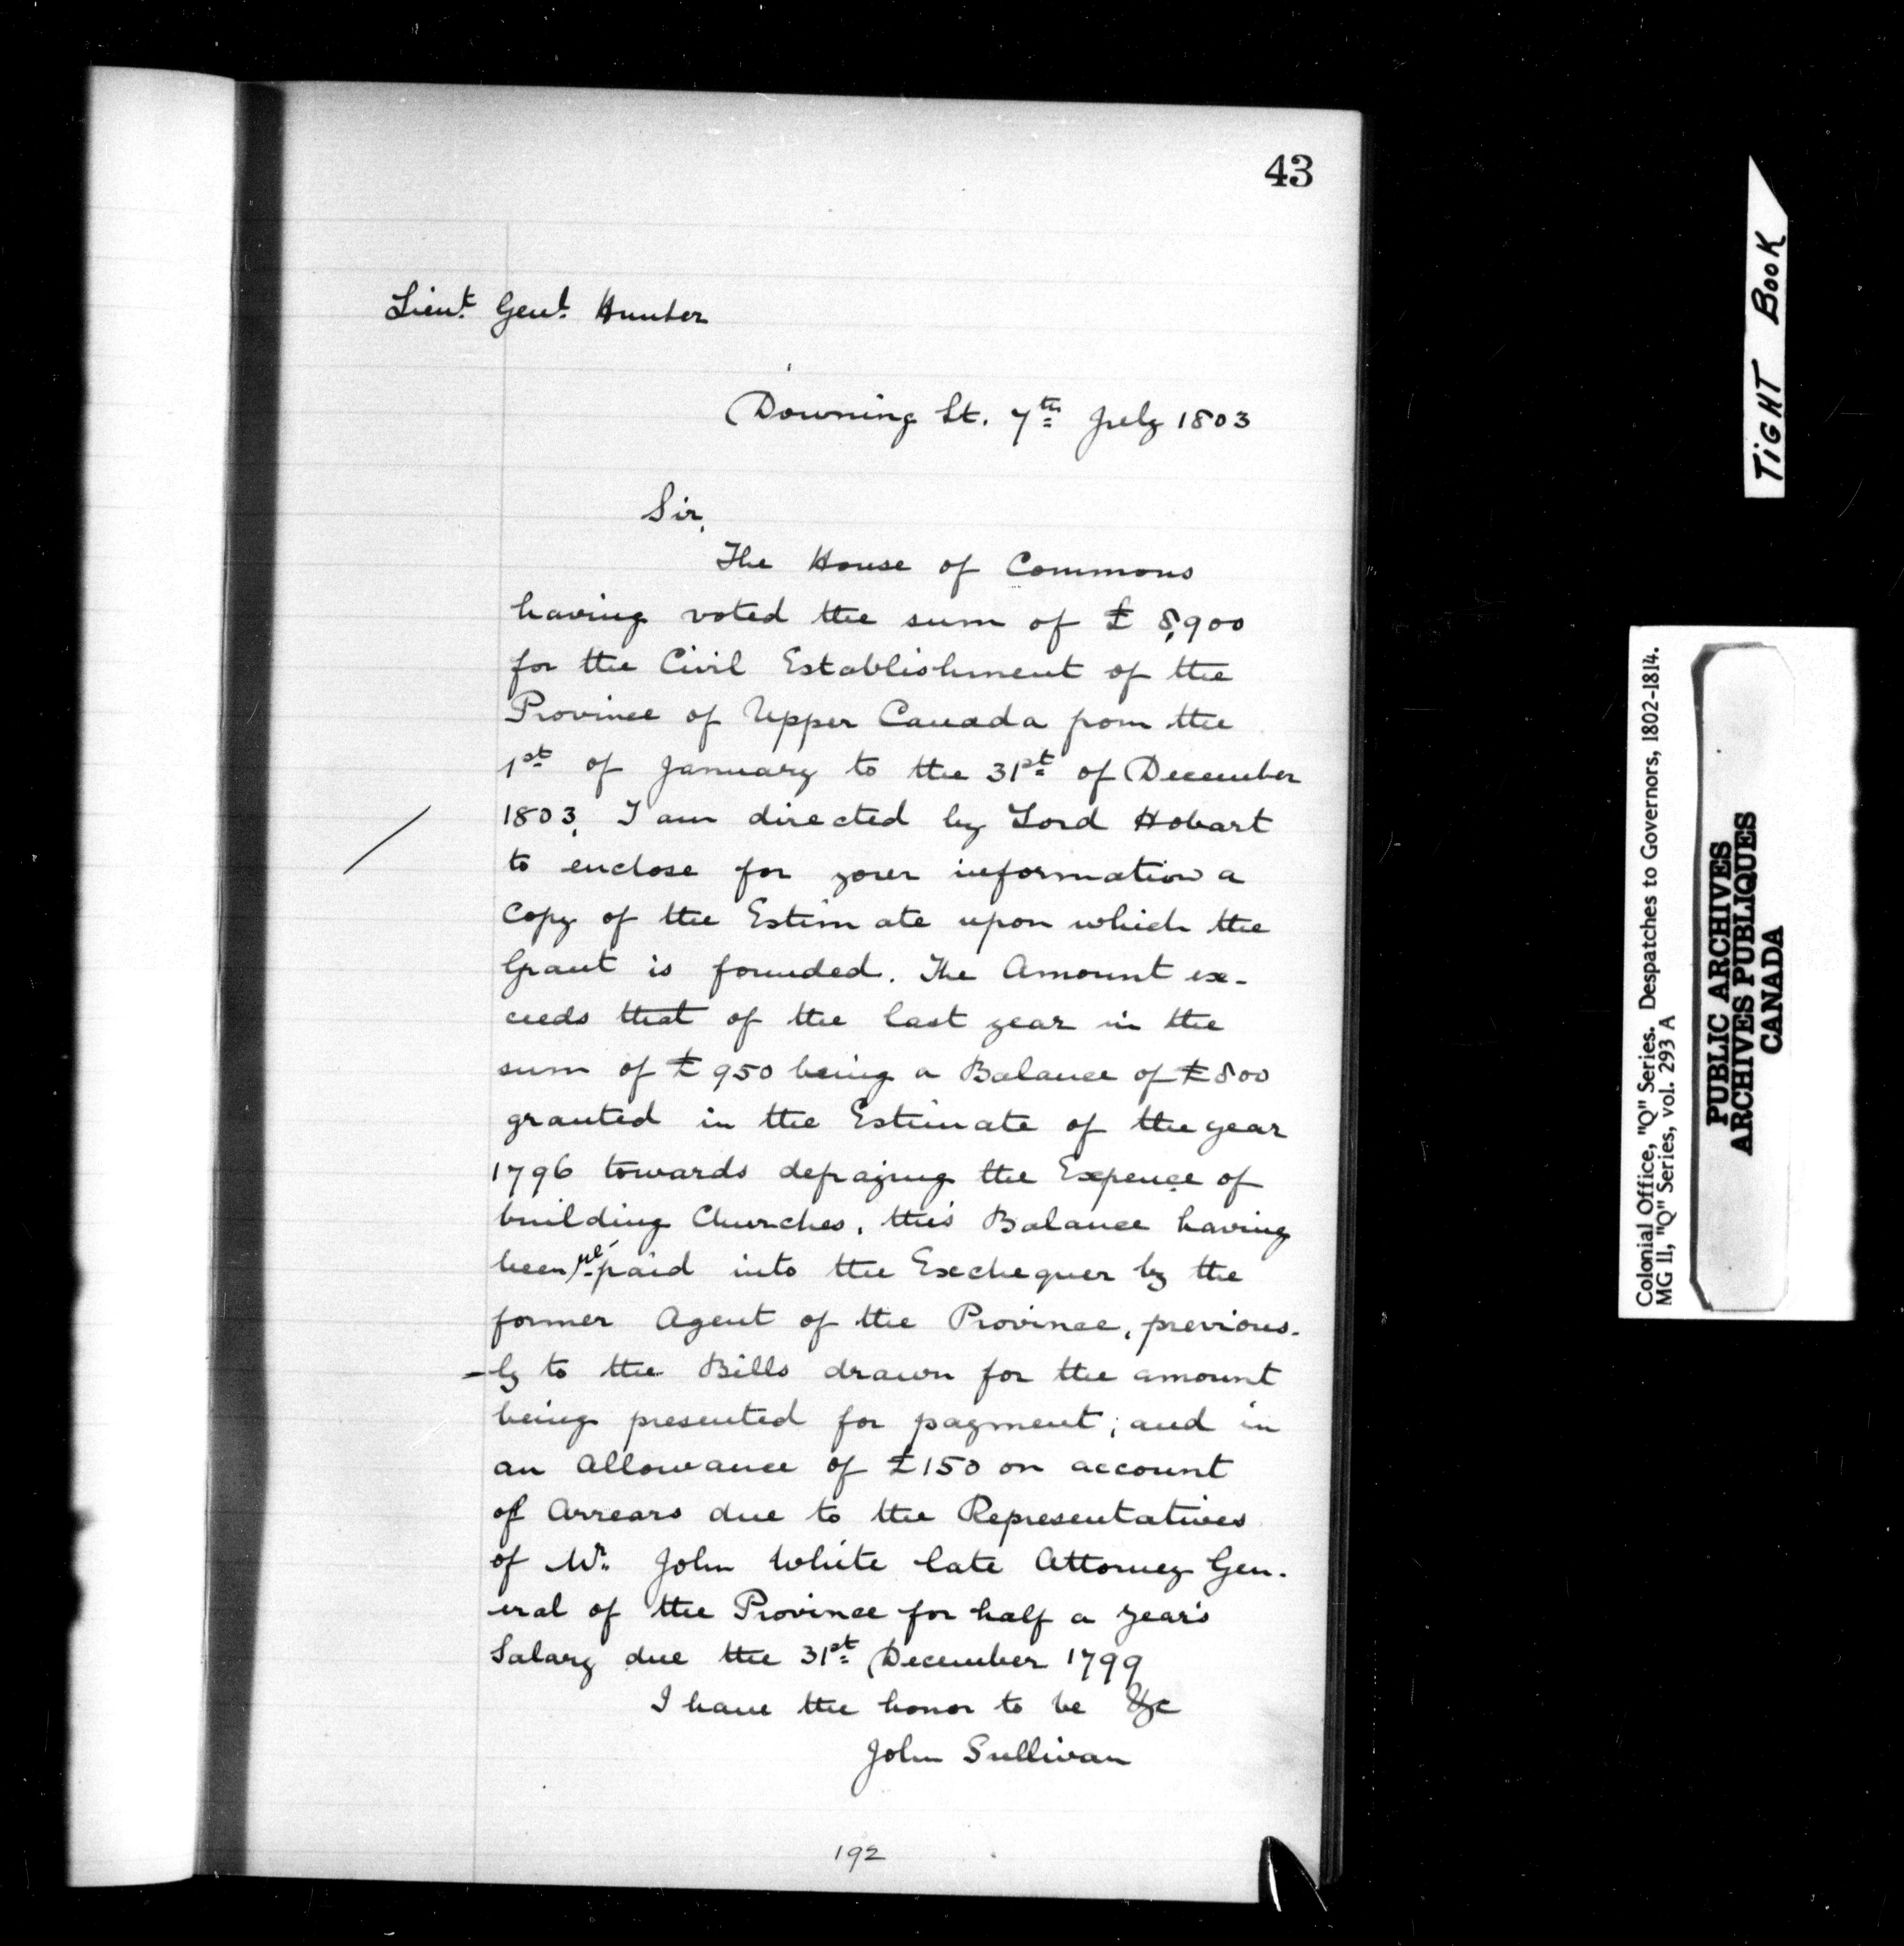 43
Lieut. Genl. Hunter
Downing St. 7th July 1803
Sir,
The House of Commons
having voted the sum of £ 8,900
for the Civil Establishment of the
Province of Upper Canada from the
1st of January to the 31st of December
1803, I am directed by Lord Hobart
to enclose for your information a
Copy of the Estimate upon which the
Grant is founded. The Amount ex-
ceeds that of the last year in the
sum of £950 being a Balance of £800
granted in the Estimate of the year
1796 towards defraying the Expence of
building Churches, this Balance having
been re-paid into the Exchequer by the
former Agent of the Province, previous-
-ly to the Bills drawn for the amount
being presented for payment; and in
an Allowance of £150 on account
of Arrears due to the Representatives
of Mr. John White late Attorney Gen-
eral of the Province for half a year's
Salary due the 31st December 1799
I have the honor to be &c
John Sullivan
192
TIGHT BOOK
Colonial Office, "Q" Series. Despatches to Governors, 1802-1814.
MG 11, "Q" Series, vol. 293 A
PUBLIC ARCHIVES
ARCHIVES PUBLIQUES
CANADA